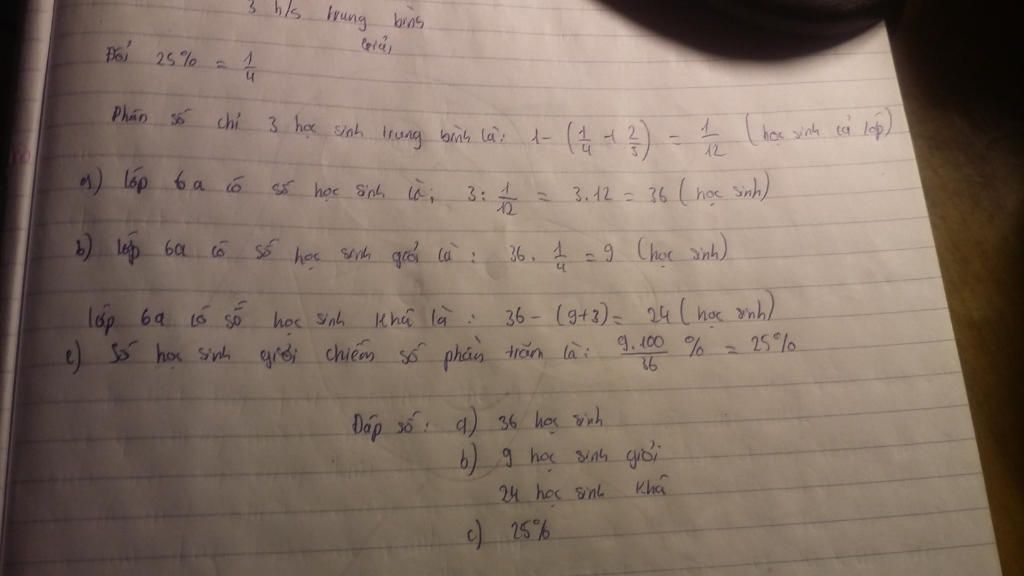 3 h/s trung bình
Giải
Đổi 25% = 1/4
Phân số chỉ 3 học sinh trung bình là: 1 - (1/4 + 2/3) = 1/12 (học sinh cả lớp)
a) lớp 6a có số học sinh là: 3 : 1/12 = 3.12 = 36 (học sinh)
b) lớp 6a có số học sinh giỏi là: 36 . 1/4 = 9 (học sinh)
lớp 6a có số học sinh khá là: 36 - (9+3) = 24 (học sinh)
c) Số học sinh giỏi chiếm số phần trăm là: 9.100/36 % = 25%
Đáp số: a) 36 học sinh
b) 9 học sinh giỏi
24 học sinh khá
c) 25%